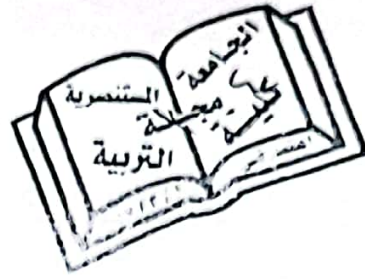 الجامعة المستنصرية
مجلة كلية
التربية